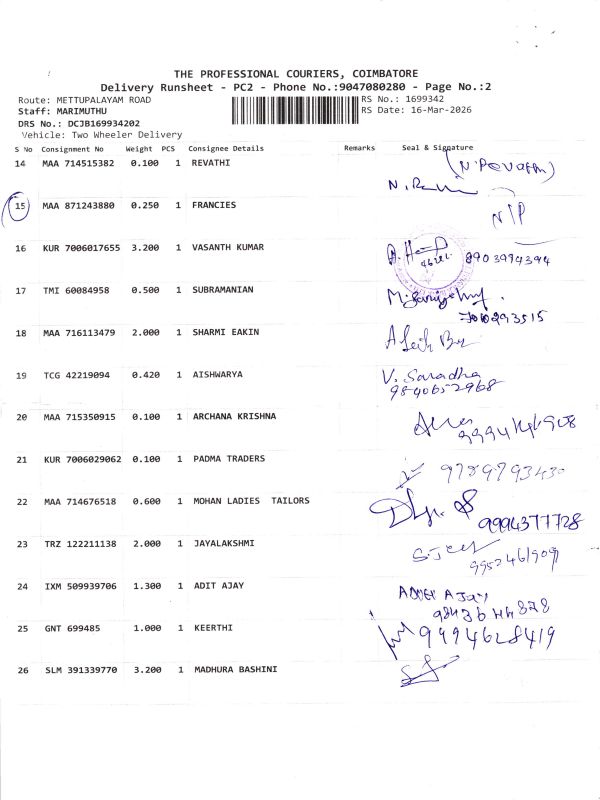 THE PROFESSIONAL COURIERS, COIMBATORE
Delivery Runsheet - PC2 - Phone No.:9047080280 - Page No.:2
Route: METTUPALAYAM ROAD RS No.: 1699342
Staff: MARIMUTHU RS Date: 16-Mar-2026
DRS No.: DCJB169934202
Vehicle: Two Wheeler Delivery
S No Consignment No Weight PCS Consignee Details Remarks Seal & Signature
14 MAA 714515382 0.100 1 REVATHI
15 MAA 871243880 0.250 1 FRANCIES N/P
16 KUR 7006017655 3.200 1 VASANTH KUMAR 8903994394
17 TMI 60084958 0.500 1 SUBRAMANIAN
18 MAA 716113479 2.000 1 SHARMI EAKIN
19 TCG 42219094 0.420 1 AISHWARYA V. Saradha
9840652968
20 MAA 715350915 0.100 1 ARCHANA KRISHNA
21 KUR 7006029062 0.100 1 PADMA TRADERS 9789793430
22 MAA 714676518 0.600 1 MOHAN LADIES TAILORS 9994377728
23 TRZ 122211138 2.000 1 JAYALAKSHMI
24 IXM 509939706 1.300 1 ADIT AJAY
9843644828
25 GNT 699485 1.000 1 KEERTHI 9994628419
26 SLM 391339770 3.200 1 MADHURA BASHINI